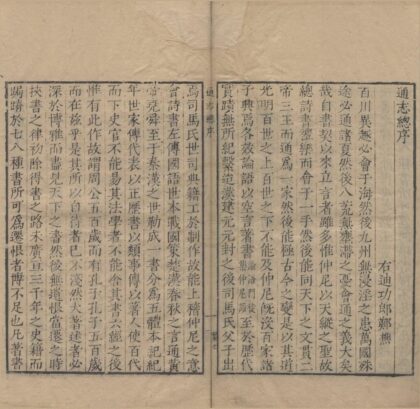 通志總序
右迪功郎鄭樵
百川異趨必會于海然後九州無浸淫之患萬國殊
途必通諸夏然後八荒無壅滯之憂會通之義大矣
哉自書契以來立言者雖多惟仲尼以天縱之聖故
總詩書禮樂而會于一手然後能同天下之文貫二
帝三王而通爲一家然後能極古今之變是以其道
光明百世之上百世之下不能及仲尼旣沒百家諸
子興焉各效論語以空言著書論語門徒集仲尼語至於歷代
實蹟無所紀繫迨漢建元元封之後司馬氏父子出
通志總序
焉司馬氏世司典籍工於制作故能上稽仲尼之意
會詩書左傳國語世本戰國策楚漢春秋之言通黃
帝堯舜至于秦漢之世勒成一書分爲五體本紀紀
年世家傳代表以正歷書以類事傳以著人使百代
而下史官不能易其法學者不能舍其書六經之後
惟有此作故謂周公五百歲而有孔子孔子五百歲
而在斯乎是其所以自待者已不淺然大著述者必
深於博雅而盡見天下之書然後無遺恨當遷之時
挾書之律初除得書之路未廣亘三千年之史籍而
跼蹐於七八種書所可爲遷恨者博不足也凡著書